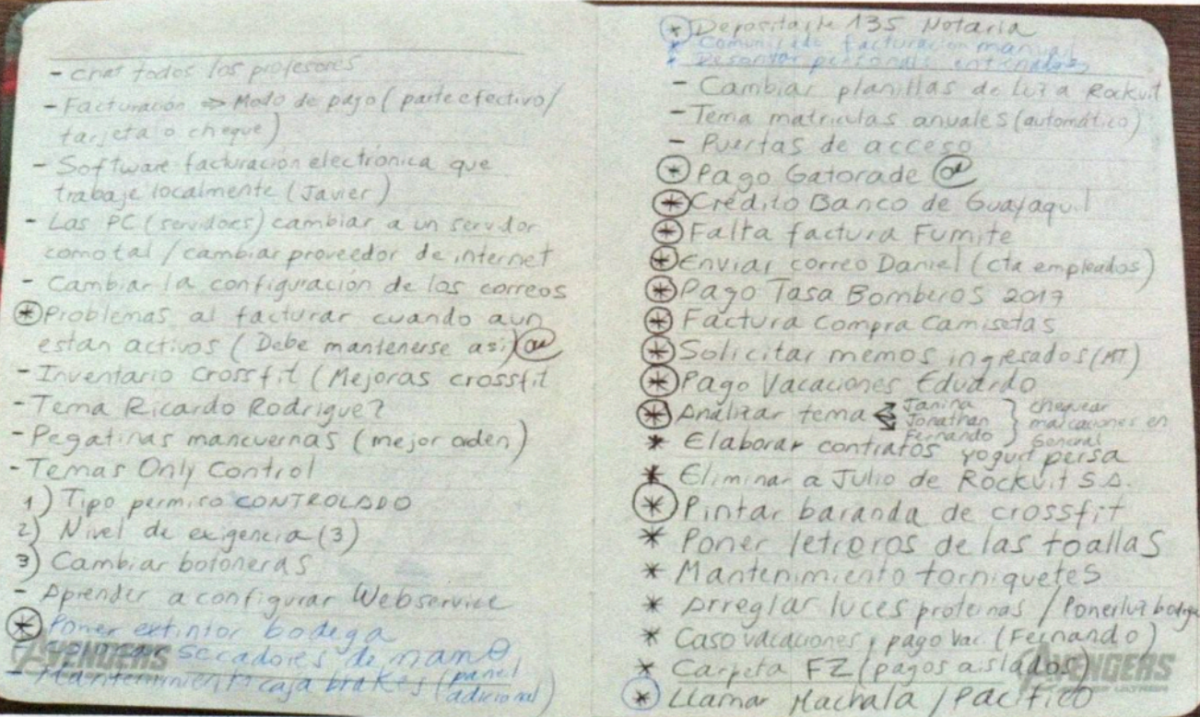 - crear todos los profesores
- Facturación => Modo de pago (parte efectivo/
tarjeta o cheque)
- Software facturación electrónica que
trabaje localmente (Javier)
- Las PC (servidores) cambiar a un servidor
como tal / cambiar proveedor de internet
- Cambiar la configuración de los correos
* Problemas al facturar cuando aun
estan activos (Debe mantenerse asi)
- Inventario Crossfit (Mejoras crossfit
- Tema Ricardo Rodriguez
- Pegatinas mancuernas (mejor orden)
- Temas Only Control
1) Tipo permiso CONTROLADO
2) Nivel de exigencia (3)
3) Cambiar botoneras
- Aprender a configurar Webservice
* Poner extintor bodega
secadores de mano
- Mantenimiento caja brakes (panel
adicional)
AVENGERS
* Depositarle 135 Notaria
* facturación manual
* personal
- Cambiar planillas de luz a Rockvit
- Tema matriculas anuales (automático)
- Puertas de acceso
* Pago Gatorade
* Crédito Banco de Guayaquil
* Falta factura Fumite
* Enviar correo Daniel (cta empleados)
* Pago Tasa Bomberos 2017
* Factura Compra Camisetas
* Solicitar memos ingresados (MT)
* Pago Vacaciones Eduardo
* Analizar tema Janina Jonathan Fernando } chequear marcaciones en General
* Elaborar contratos yogurt persa
* Eliminar a Julio de Rockvit S.A.
* Pintar baranda de crossfit
* Poner letreros de las toallas
* Mantenimiento torniquetes
* Arreglar luces proteinas / Poner luz bodega
* Caso vacaciones y pago vac. (Fernando)
* Carpeta FZ (pagos aislados)
* Llamar Machala / Pacifico
AVENGERS